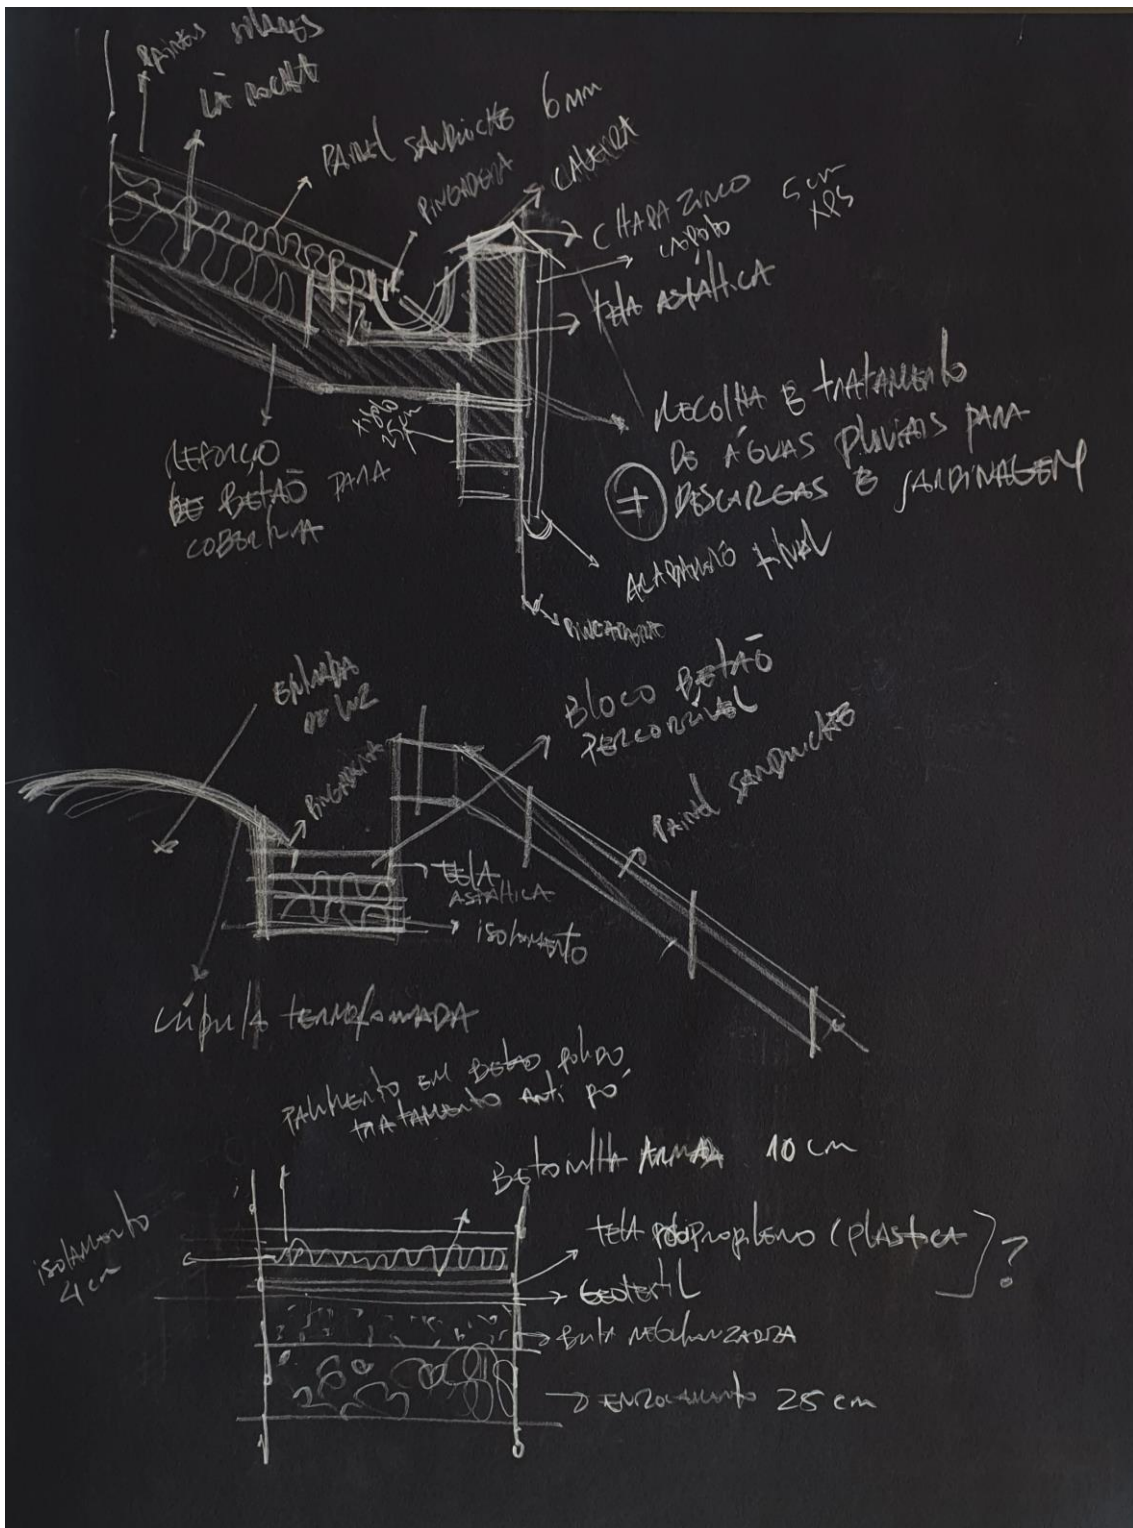 PAINEIS SOLARES
LÃ ROCHA
PAINEL SANDUICHE 6mm
PINGADEIRA
CALEIRA
CHAPA ZINCO
5 cm
XPS
TELA ASFALTICA
RECOLHA E TRATAMENTO
DE ÁGUAS PLUVIAIS PARA
+ DESCARGAS E JARDINAGEM
REFORÇO
DE BETÃO PARA
COBERTURA
25cm
ACABAMENTO FINAL
PINGADEIRA
ENTRADA
DE LUZ
PINGADEIRA
BLOCO BETÃO
PERCORRÍVEL
PAINEL SANDUICHE
TELA
ASFALTICA
ISOLAMENTO
CÚPULA TERMOFORMADA
PAVIMENTO EM BETÃO POLIDO
TRATAMENTO ANTI PÓ
BETONILHA ARMADA 10 cm
ISOLAMENTO
4 cm
TELA POLIPROPILENO (PLASTICA
?
GEOTEXTIL
BRITA REGULARIZADORA
ENROCAMENTO 25 cm